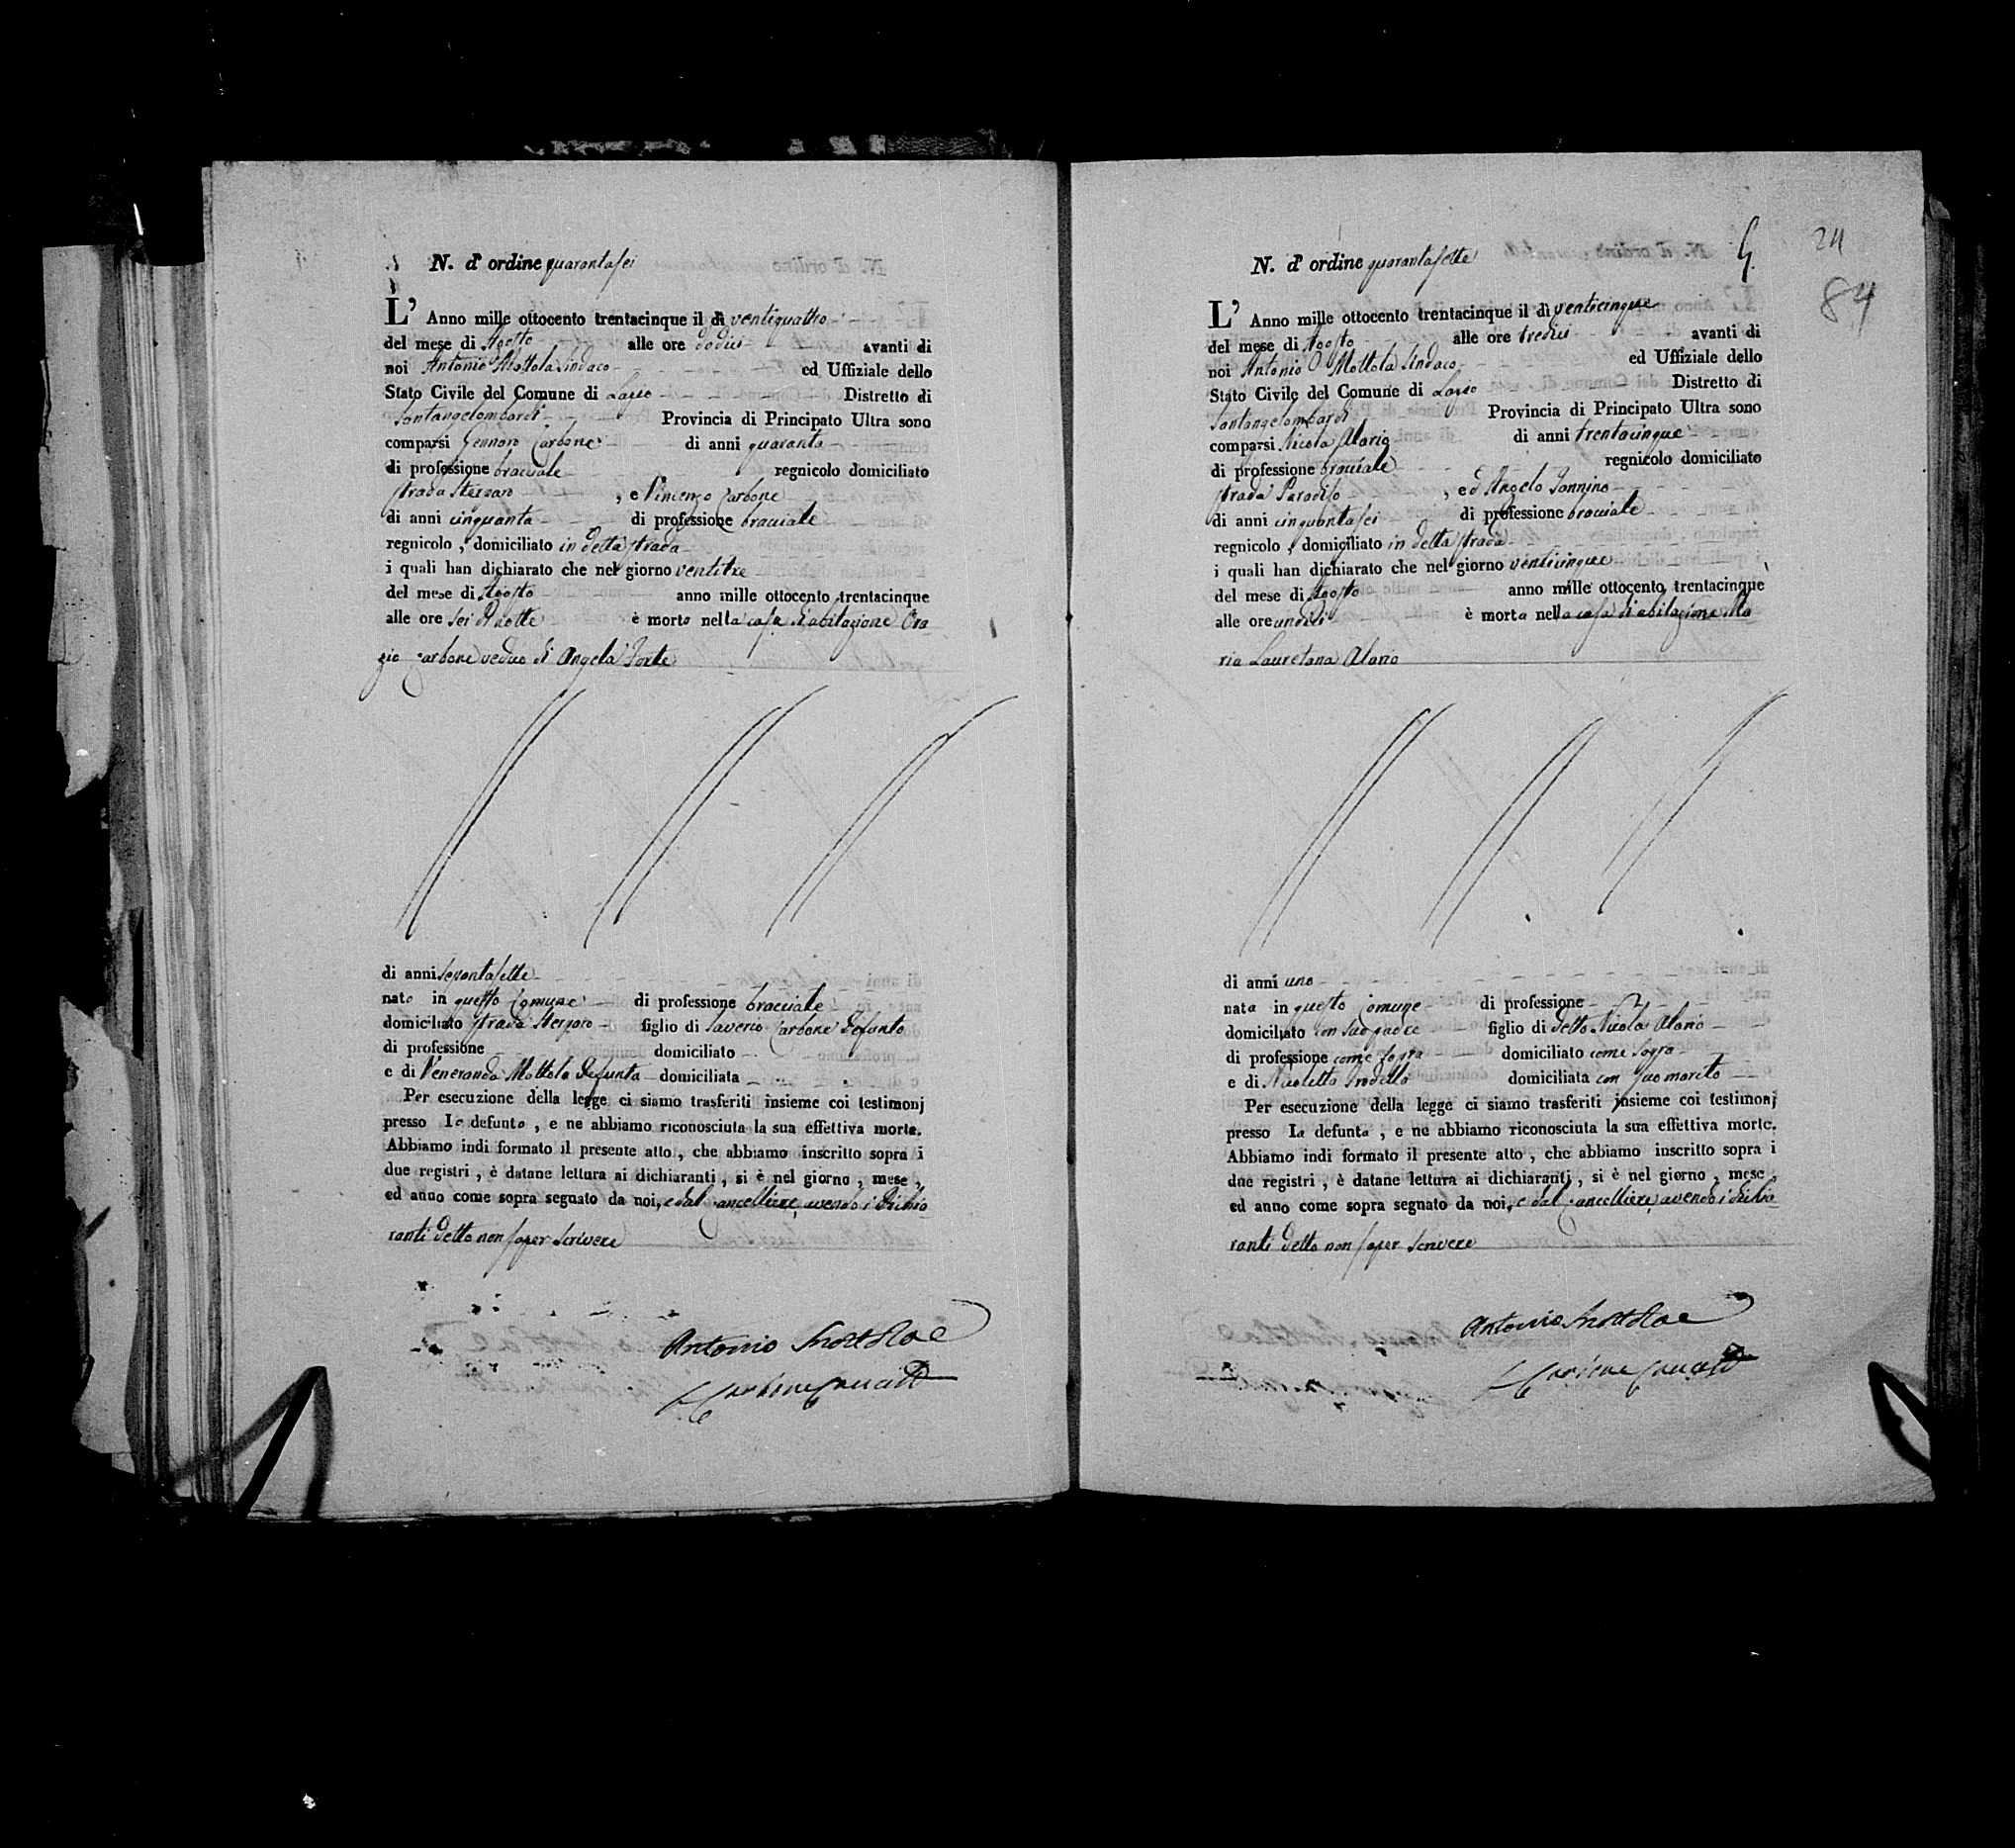 N. d' ordine quarantasei
L' Anno mille ottocento trentacinque il dì ventiquattro
del mese di Agosto alle ore dodici avanti di
noi Antonio Mottola Sindaco ed Uffiziale dello
Stato Civile del Comune di Distretto di
Santangelombardi Provincia di Principato Ultra sono
comparsi Gennaro Carbone di anni quaranta
di professione bracciale regnicolo domiciliato
strada , e Vincenzo Carbone
di anni cinquanta di professione bracciale
regnicolo , domiciliato in detta strada
i quali han dichiarato che nel giorno ventitre
del mese di Agosto anno mille ottocento trentacinque
alle ore sei di notte è morto nella casa d'abitazione Ora
zio Carbone veduo di Angela Forte
di anni settantasette
nato in questo Comune di professione bracciale
domiciliato strada figlio di Saverio Carbone defunto
di professione domiciliato
e di Veneranda Mottola defunta domiciliata
Per esecuzione della legge ci siamo trasferiti insieme coi testimonj
presso lo defunto , e ne abbiamo riconosciuta la sua effettiva morte.
Abbiamo indi formato il presente atto , che abbiamo inscritto sopra i
due registri , è datane lettura ai dichiaranti , si è nel giorno , mese ,
ed anno come sopra segnato da noi, e dal Cancelliere, avendo i dichia
ranti detto non saper scrivere
Antonio Mottola
24
84
N. d' ordine quarantasette
L' Anno mille ottocento trentacinque il dì venticinque
del mese di Agosto alle ore tredici avanti di
noi Antonio Mottola Sindaco ed Uffiziale dello
Stato Civile del Comune di Distretto di
Santangelombardi Provincia di Principato Ultra sono
comparsi Nicola Alario di anni trentacinque
di professione bracciale regnicolo domiciliato
strada Paradiso , ed Angelo Iannino
di anni cinquantasei di professione bracciale
regnicolo , domiciliato in detta strada
i quali han dichiarato che nel giorno venticinque
del mese di Agosto anno mille ottocento trentacinque
alle ore undici è morta nella casa d'abitazione Ma
ria Lauretana Alario
di anni uno
nata in questo Comune di professione
domiciliato con suo padre figlio di detto Nicola Alario
di professione come sopra domiciliato come sopra
e di Nicoletta domiciliata con suo marito
Per esecuzione della legge ci siamo trasferiti insieme coi testimonj
presso la defunta , e ne abbiamo riconosciuta la sua effettiva morte.
Abbiamo indi formato il presente atto , che abbiamo inscritto sopra i
due registri , è datane lettura ai dichiaranti , si è nel giorno , mese ,
ed anno come sopra segnato da noi, e dal Cancelliere, avendo i dichia
ranti detto non saper scrivere
Antonio Mottola